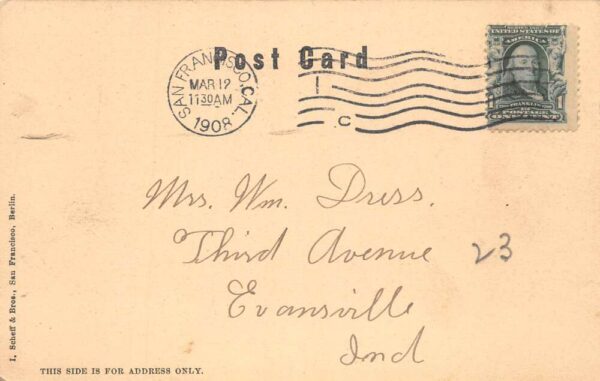 Post Card
SAN FRANCISCO, CAL.
MAR 12
11 30 AM
1908
1
C
UNITED STATES OF
AMERICA
FRANKLIN
1 1
POSTAGE
ONE CENT
Mrs. Wm. Dress.
Third Avenue
23
Evansville
Ind
I. Scheff & Bros., San Francisco, Berlin.
THIS SIDE IS FOR ADDRESS ONLY.